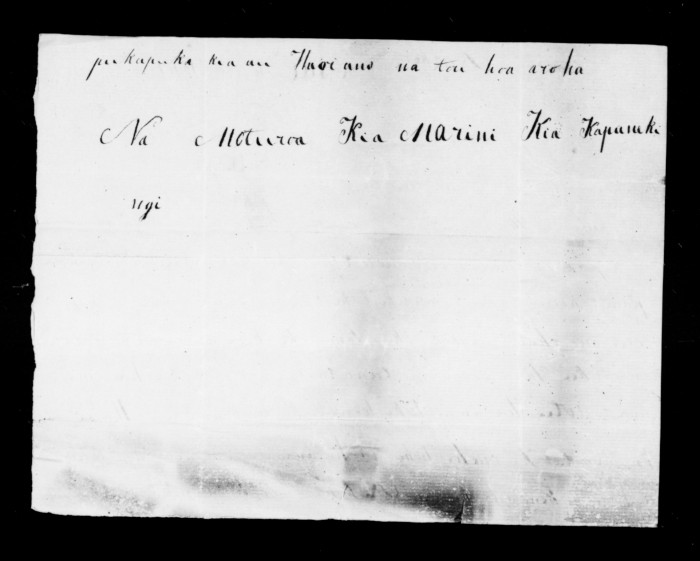 pukapuka kia au Hoxiano na tou hoa aroha
Na Moturoa Kia Marini Kia Kapunuki
ngi